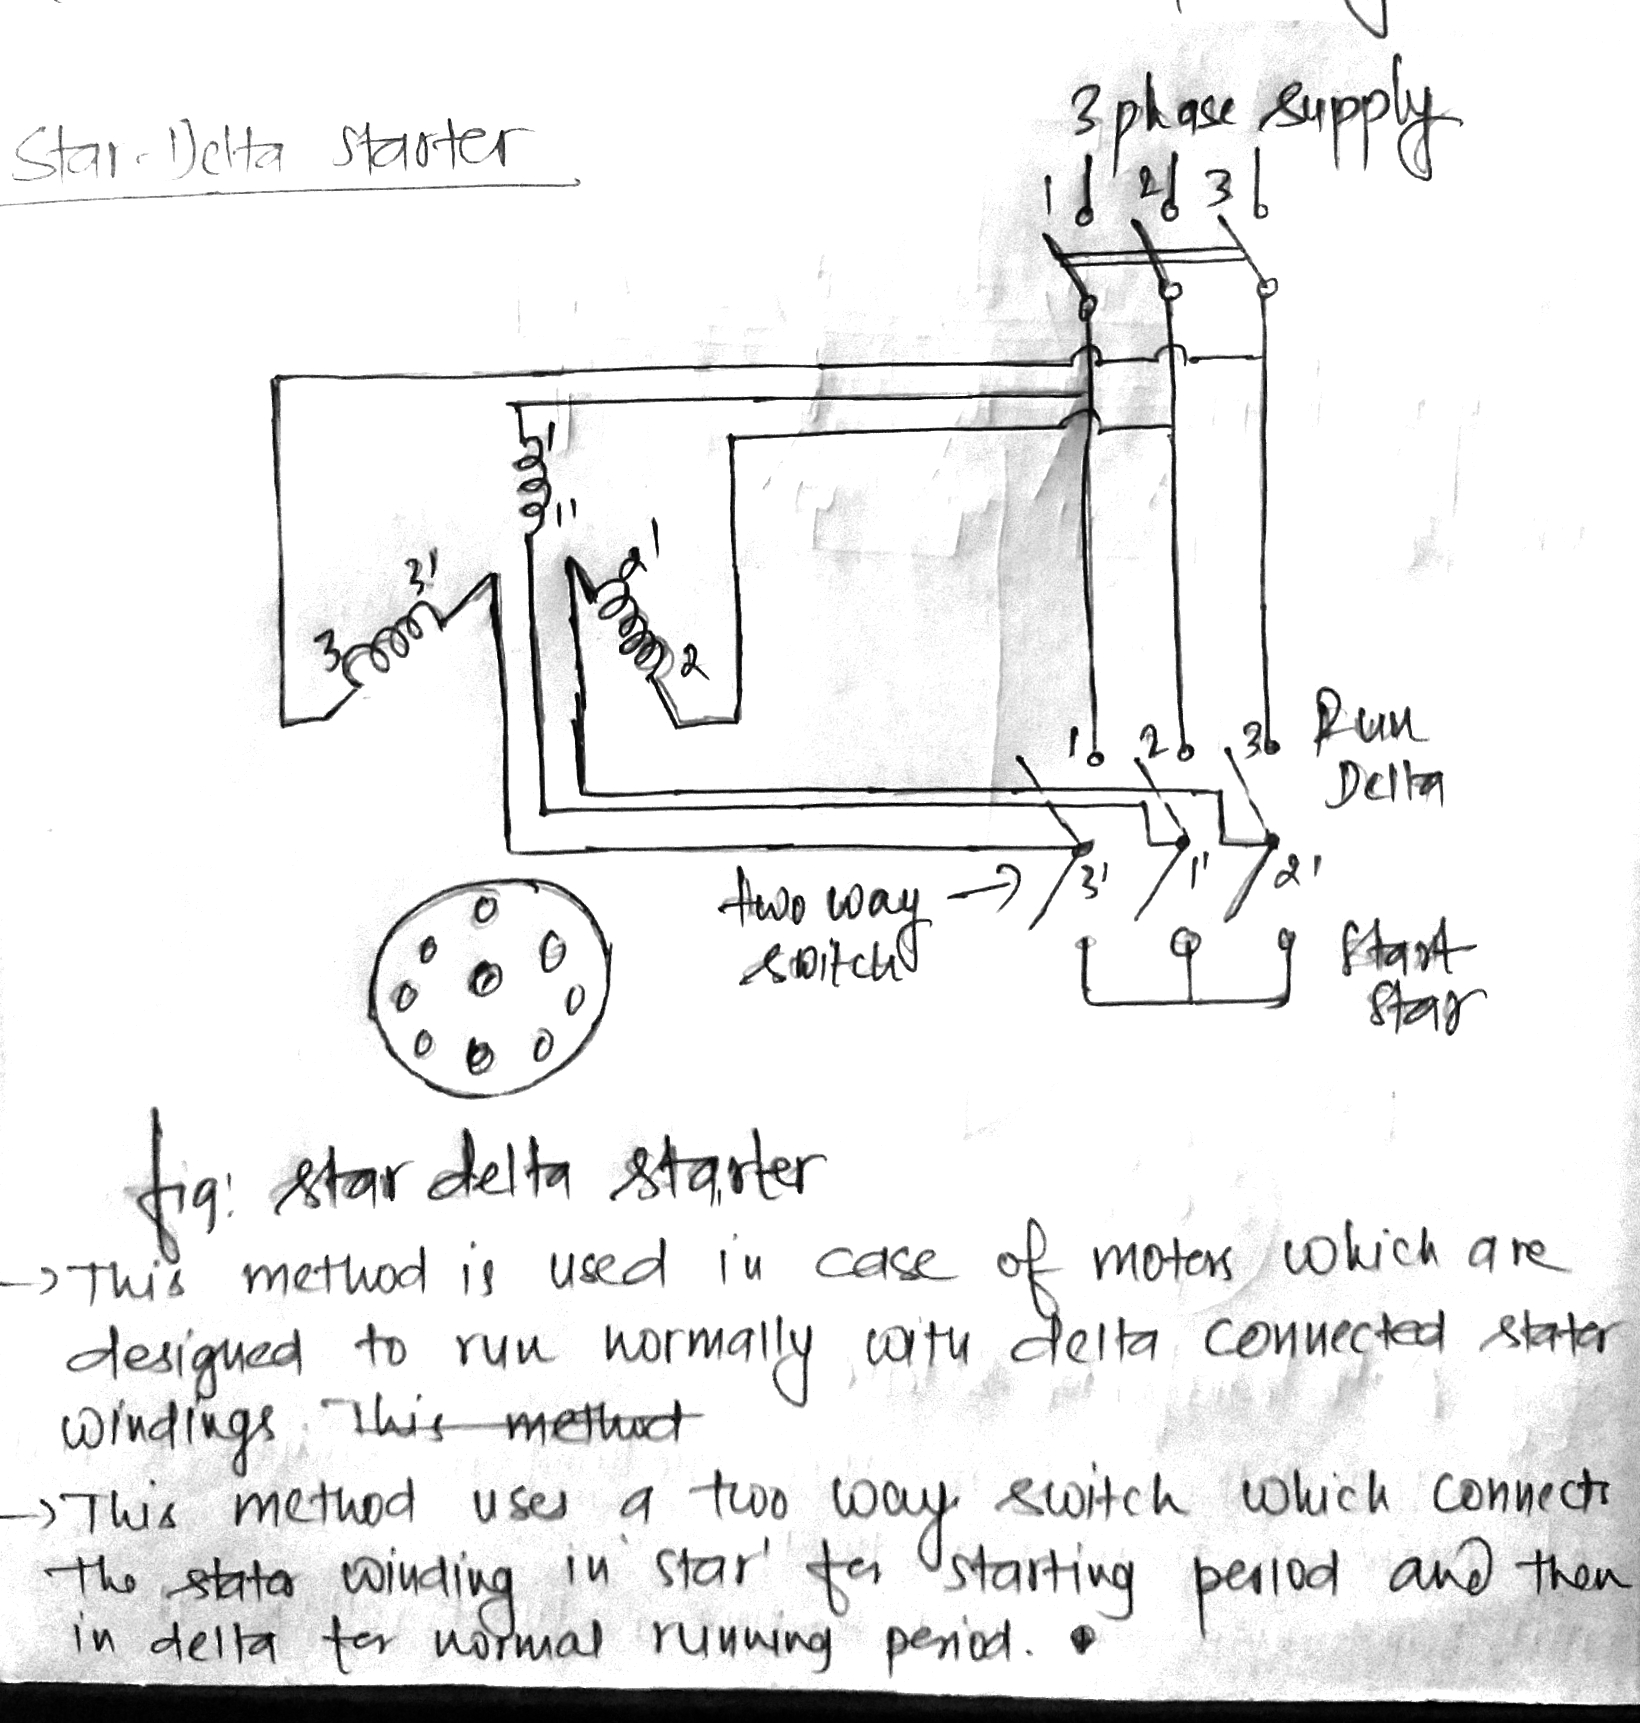 Star-Delta starter
3 phase supply
1 2 3
1' 1'
3' 2'
3 2
1 2 3 Run
Delta
3' 1' 2'
two way →
switch
Start
Star
fig: star delta starter
→ This method is used in case of motors which are
designed to run normally with delta connected stator
windings. This method
→ This method uses a two way switch which connects
the stator winding in 'star' for starting period and then
in delta for normal running period.